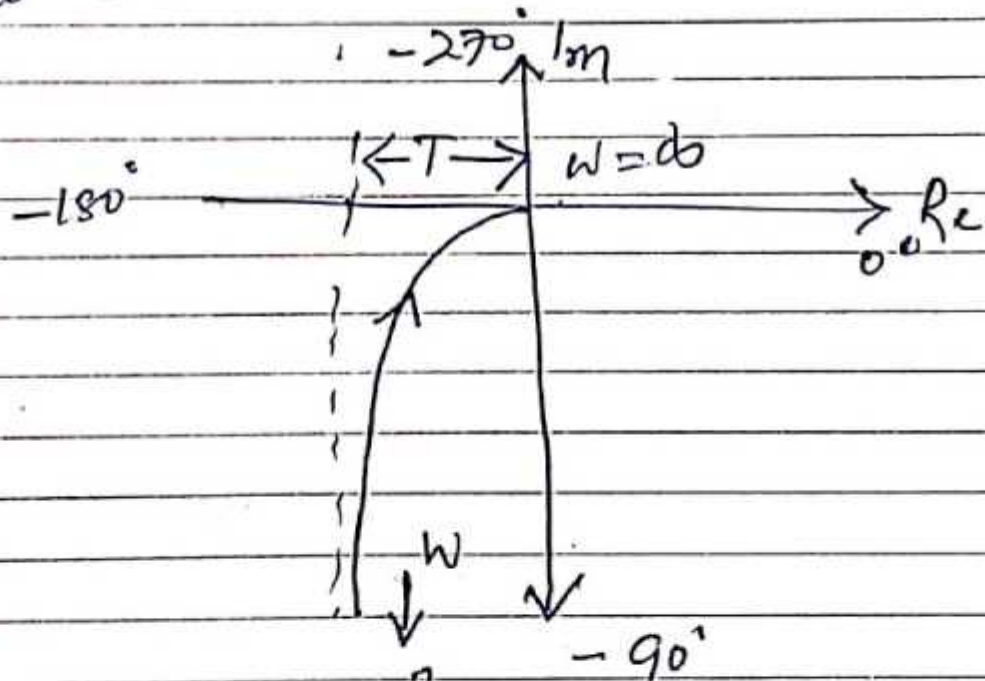 -270° Im
T
W = ∞
-180°
Re
0°
W
-90°